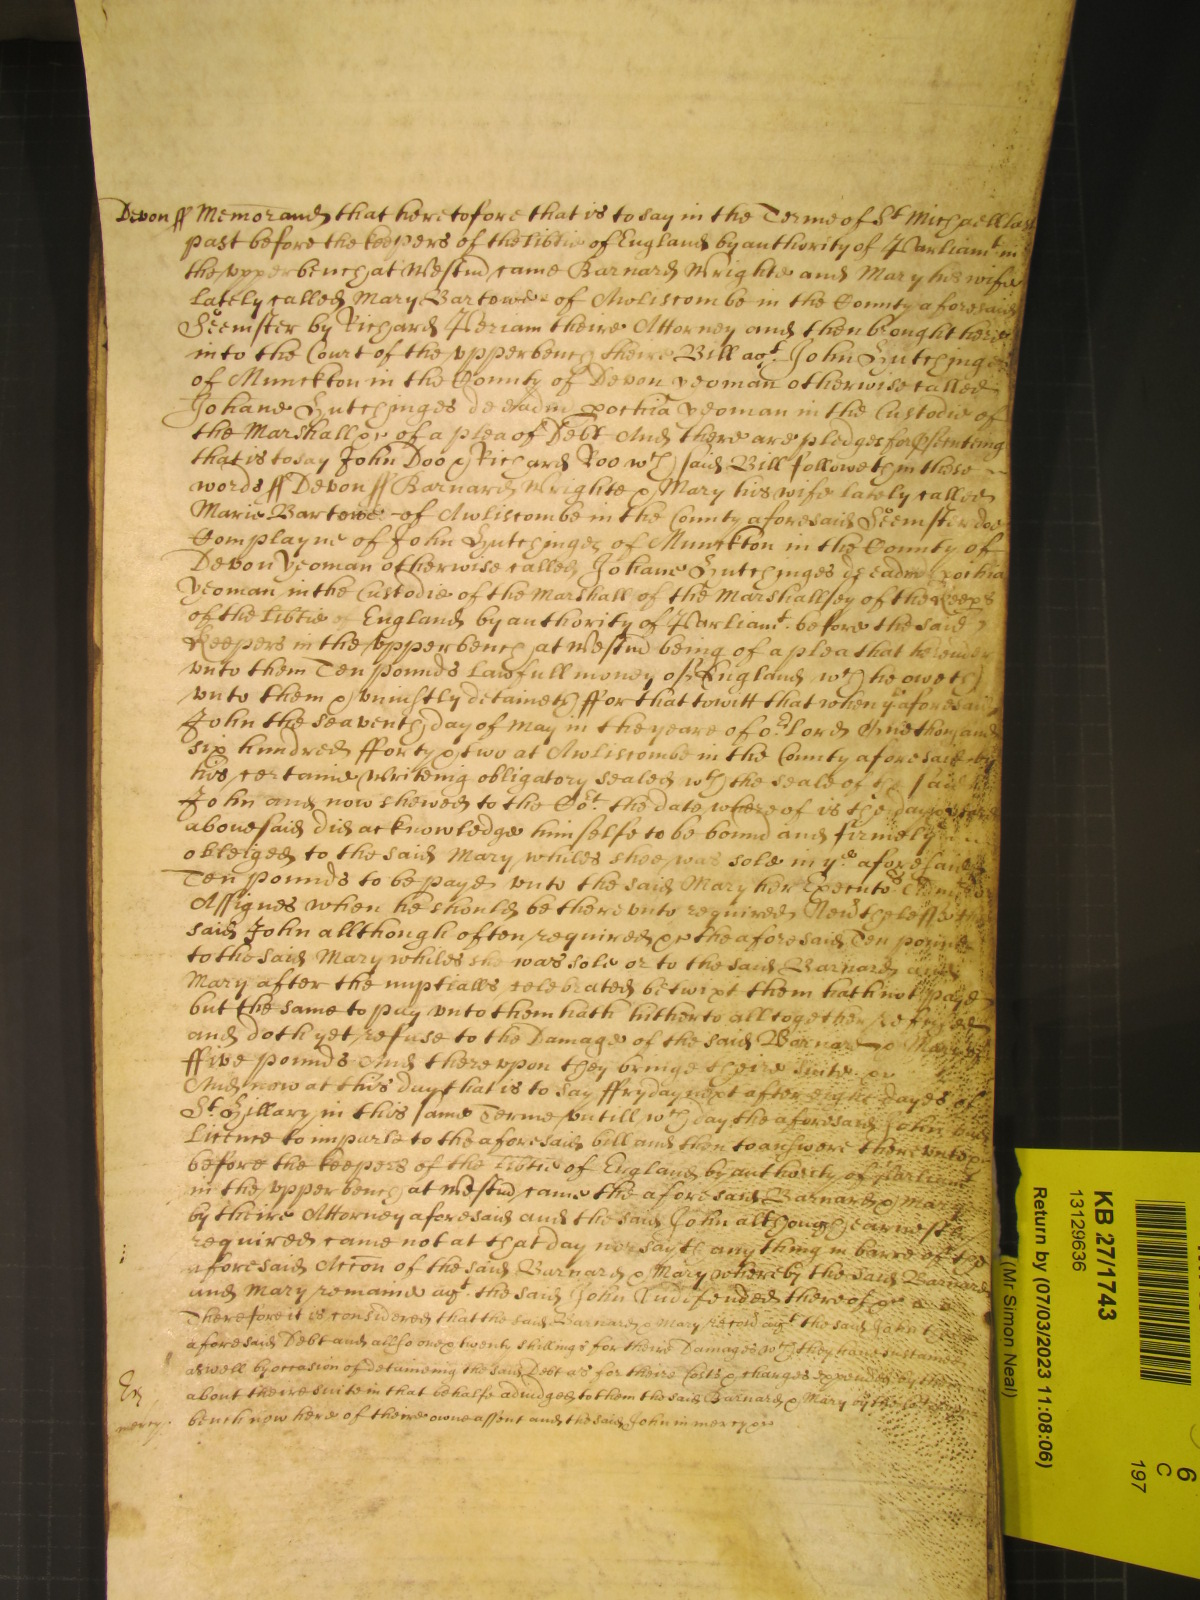 Devon ff Memorand that heretofore that is to say in the Terme of St Michaell last
past before the keepers of the libtie of England by authority of Parliamt in
the vpper bench at Westmr came Barnard Wrighte and Mary his wife
lately called Mary Bartowe of Awliscombe in the County aforesaid
Seemster by Richard Periam theire Attorney and then brought heere
into the Court of the vpper bench theire Bill agt John Hutchinges
of Munckton in the County of Devon yeoman otherwise called
Johane Hutchinges de eadm pochia yeoman in the Custodie of
the Marshall &c of a plea of Debt And there are pledges for psecuting
that is to say John Doo & Richard Roo wch said Bill followeth in these
words ff Devon ff Barnard Wrighte & Mary his wife lately called
Marie Bartowe of Awliscombe in the County aforesaid Seemster doe
Complayne of John Hutchinges of Munckton in the County of
Devon yeoman otherwise called Johane Hutchinges de eadm pochia
yeoman in the Custodie of the Marshall of the Marshallsey of the keeps
of the libtie of England by authority of Parliamt before the said
Keepers in the vpper bench at Westmr being of a plea that he render
vnto them Ten pounds lawfull money of England wch he oweth
vnto them & vniustly detaineth ffor that towitt that when ye aforesaid
John the seaventh day of May in the yeare of or Lord One thousand
six hundred fforty & two at Awliscombe in the County aforesaid by
his certaine Writeing obligatory sealed wth the seale of the said
John and now shewed to the Cot the date whereof is the day
abouesaid did acknowledge himselfe to be bound and firmely
obleiged to the said Mary whiles shee was sole in ye aforesaid
Ten pounds to be payd vnto the said Mary her Executors
Assignes when he should be therevnto required Nevthelesse the
said John allthough often required &c the aforesaid Ten pounds
to the said Mary whiles she was sole or to the said Barnard and
Mary after the nuptialls celebrated betwixt them hath not payd
but the same to pay vnto them hath hitherto alltogether refused
and doth yet refuse to the Damage of the said Barnard & Mary of
ffive pounds And therevpon they bringe theire suite &c
And now at this day that is to say ffryday next after eight dayes of
St Hillary in this same Terme vntill wch day the aforesaid John had
Licence to imparle to the aforesaid bill and then to answere therevnto &c
before the keepers of the libtie of England by authority of Parliamt
in the vpper bench at Westmr came the aforesaid Barnard & Mary
by theire Attorney aforesaid and the said John although earnestly
required came not at that day nor sayth anything in barre of the
aforesaid Accon of the said Barnard & Mary whereby the said Barnard
and Mary remaine agt the said John Vndifended thereof &c
Therefore it is considered that the said Barnard & Mary Recovr agt the said John
aforesaid Debt and allso one & twenty shillings for theire Damages wch they have sustained
aswell by occasion of detaineing the said Debt as for theire Costs & charges expended by them
about theire suite in that behalfe adiudged to them the said Barnard & Mary by the
bench now here of theire owne assent and the said John in mercy &c
mercy
KB 27/1743
13129636
Return by (07/03/2023 11:08:06)
(Mr Simon Neal)
6
C
197